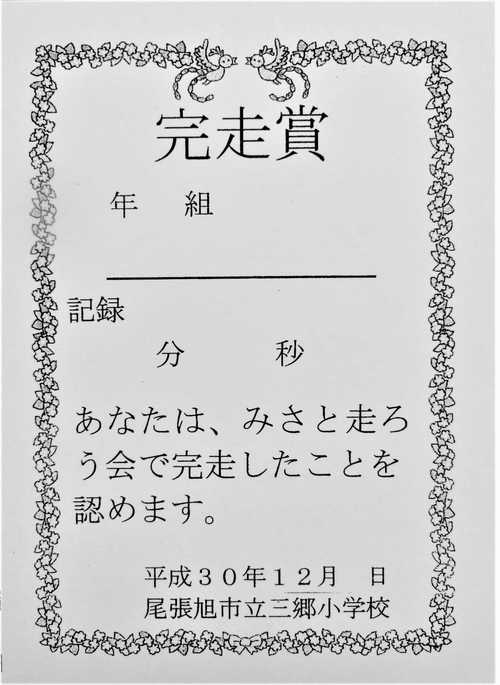 完走賞
年　組
記録
分　秒
あなたは、みさと走ろ
う会で完走したことを
認めます。
平成３０年１２月　日
尾張旭市立三郷小学校